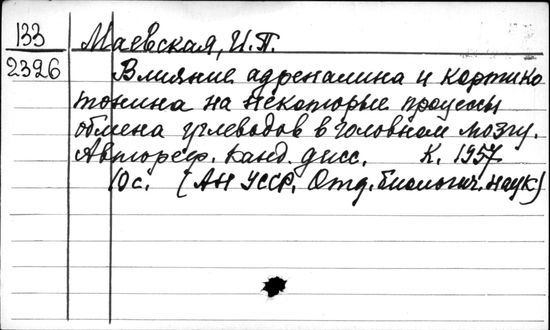 133
2326
Маевская, И.П.
Влияние адреналина и кортико
тонина на некоторые процессы
обмена углеводов в головном мозгу.
Автореф. канд. дисс. К. 1957
10 с. (АН УССР. Отд. биологич. наук)